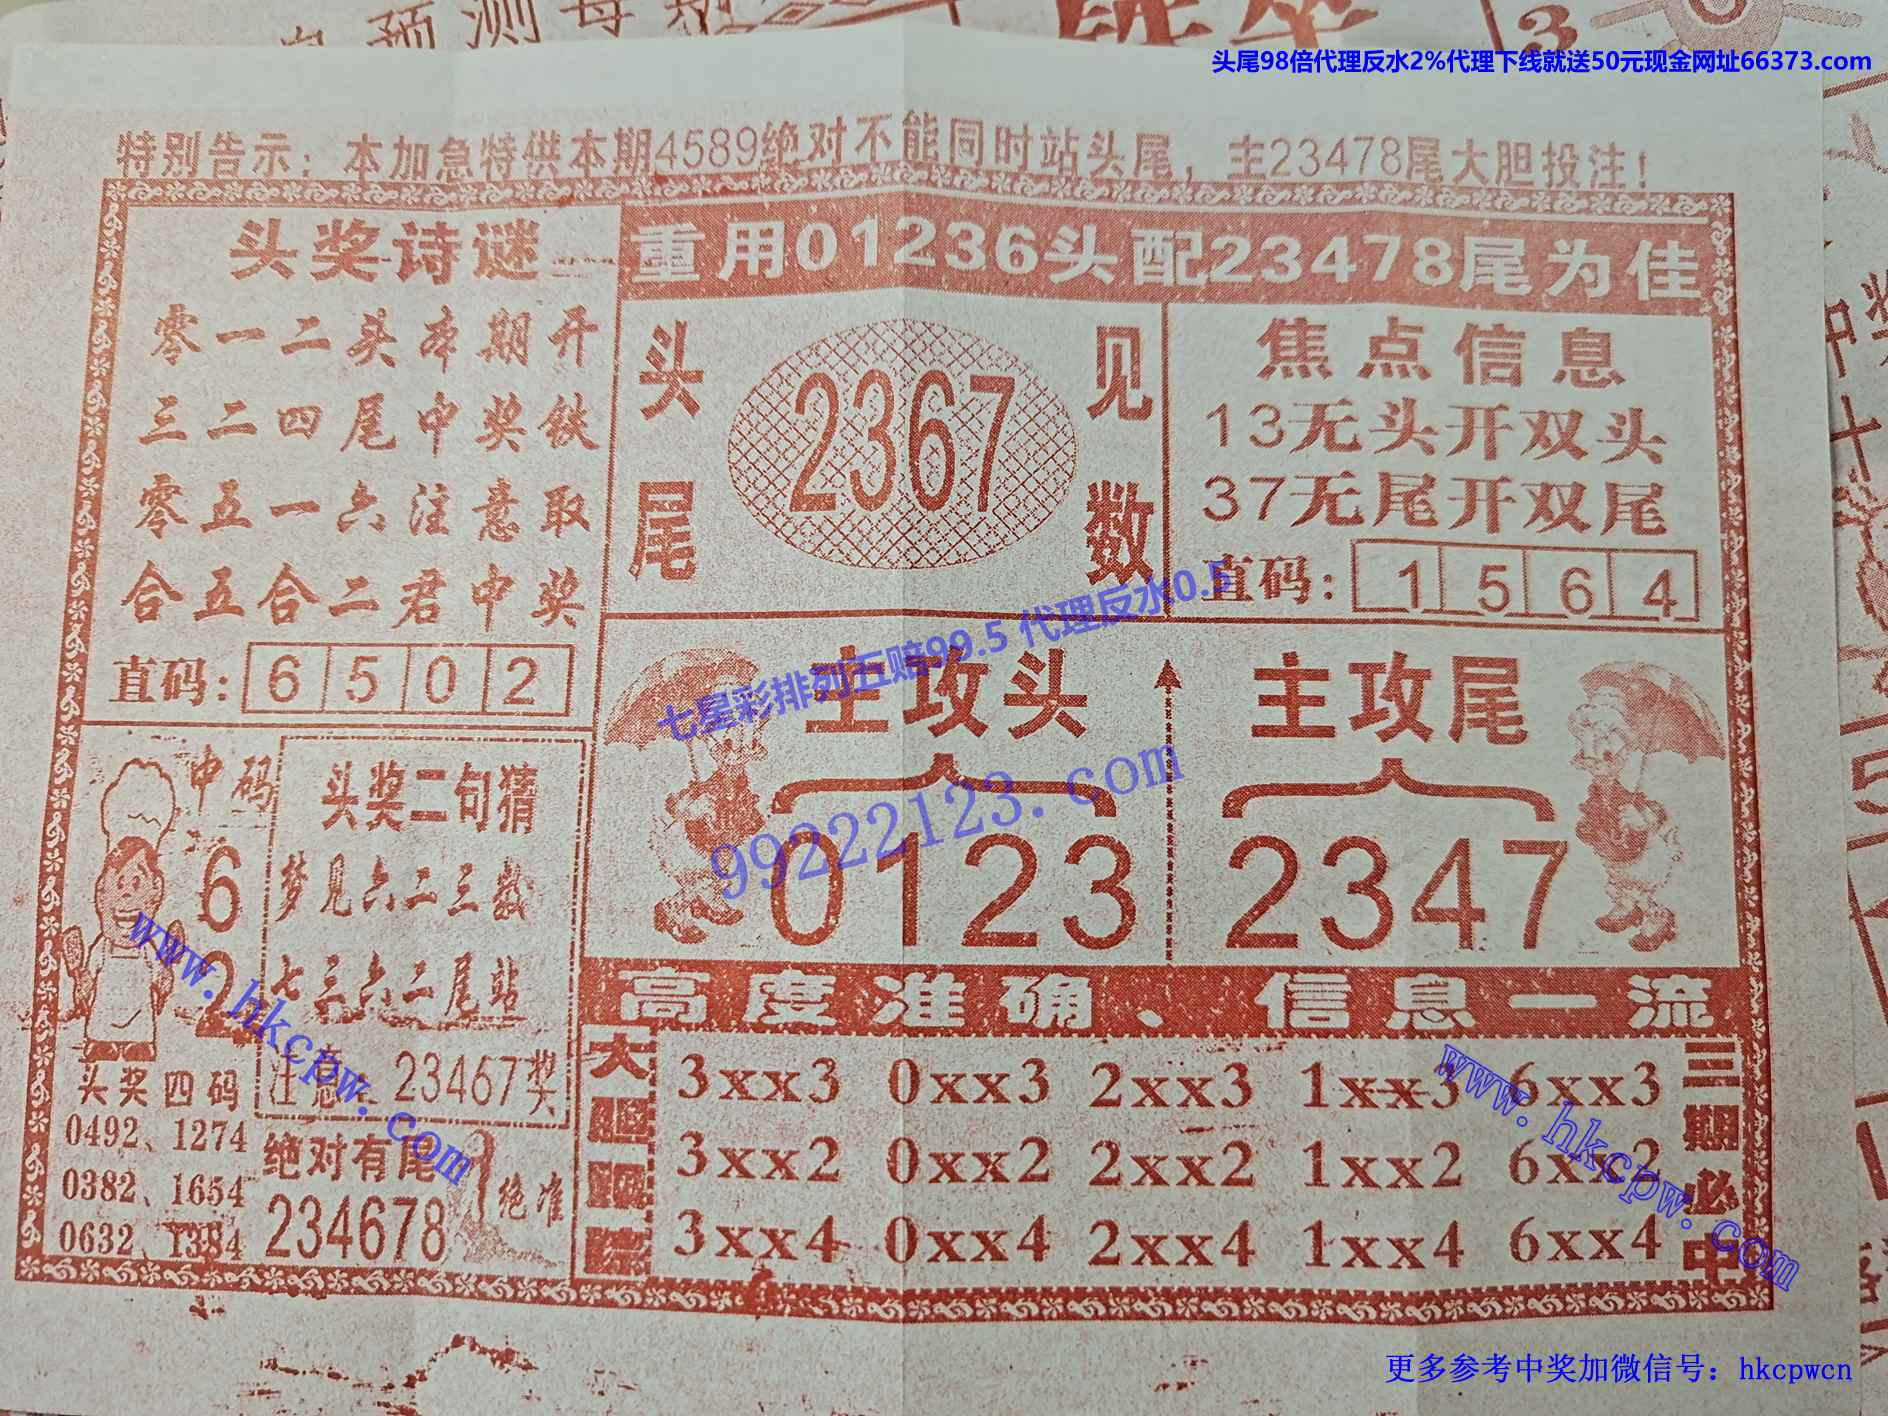 预测母
3
头尾98倍代理反水2%代理下线就送50元现金网址66373.com
特别告示：本加急特供本期4589绝对不能同时站头尾，主23478尾大胆投注！
头奖诗谜
零一二头本期开
三二四尾中奖铁
零五一六注意取
合五合二君中奖
直码：6502
重用01236头配23478尾为佳
头尾
2367
见数
焦点信息
13无头开双头
37无尾开双尾
直码：1564
七星彩排列五赔99.5 代理反水0.5
99222123.com
主攻头
0123
主攻尾
2347
中码
6
2
头奖二句猜
梦见六二三数
七三六二尾站
注意：23467奖
头奖四码
0492、1274
0382、1654
0632、1384
绝对有尾
234678
绝准
高度准确、信息一流
大胆跟踪
3xx3 0xx3 2xx3 1xx3 6xx3
3xx2 0xx2 2xx2 1xx2 6xx2
3xx4 0xx4 2xx4 1xx4 6xx4
三期必中
www.hkcpw.com
www.hkcpw.com
更多参考中奖加微信号：hkcpwcn